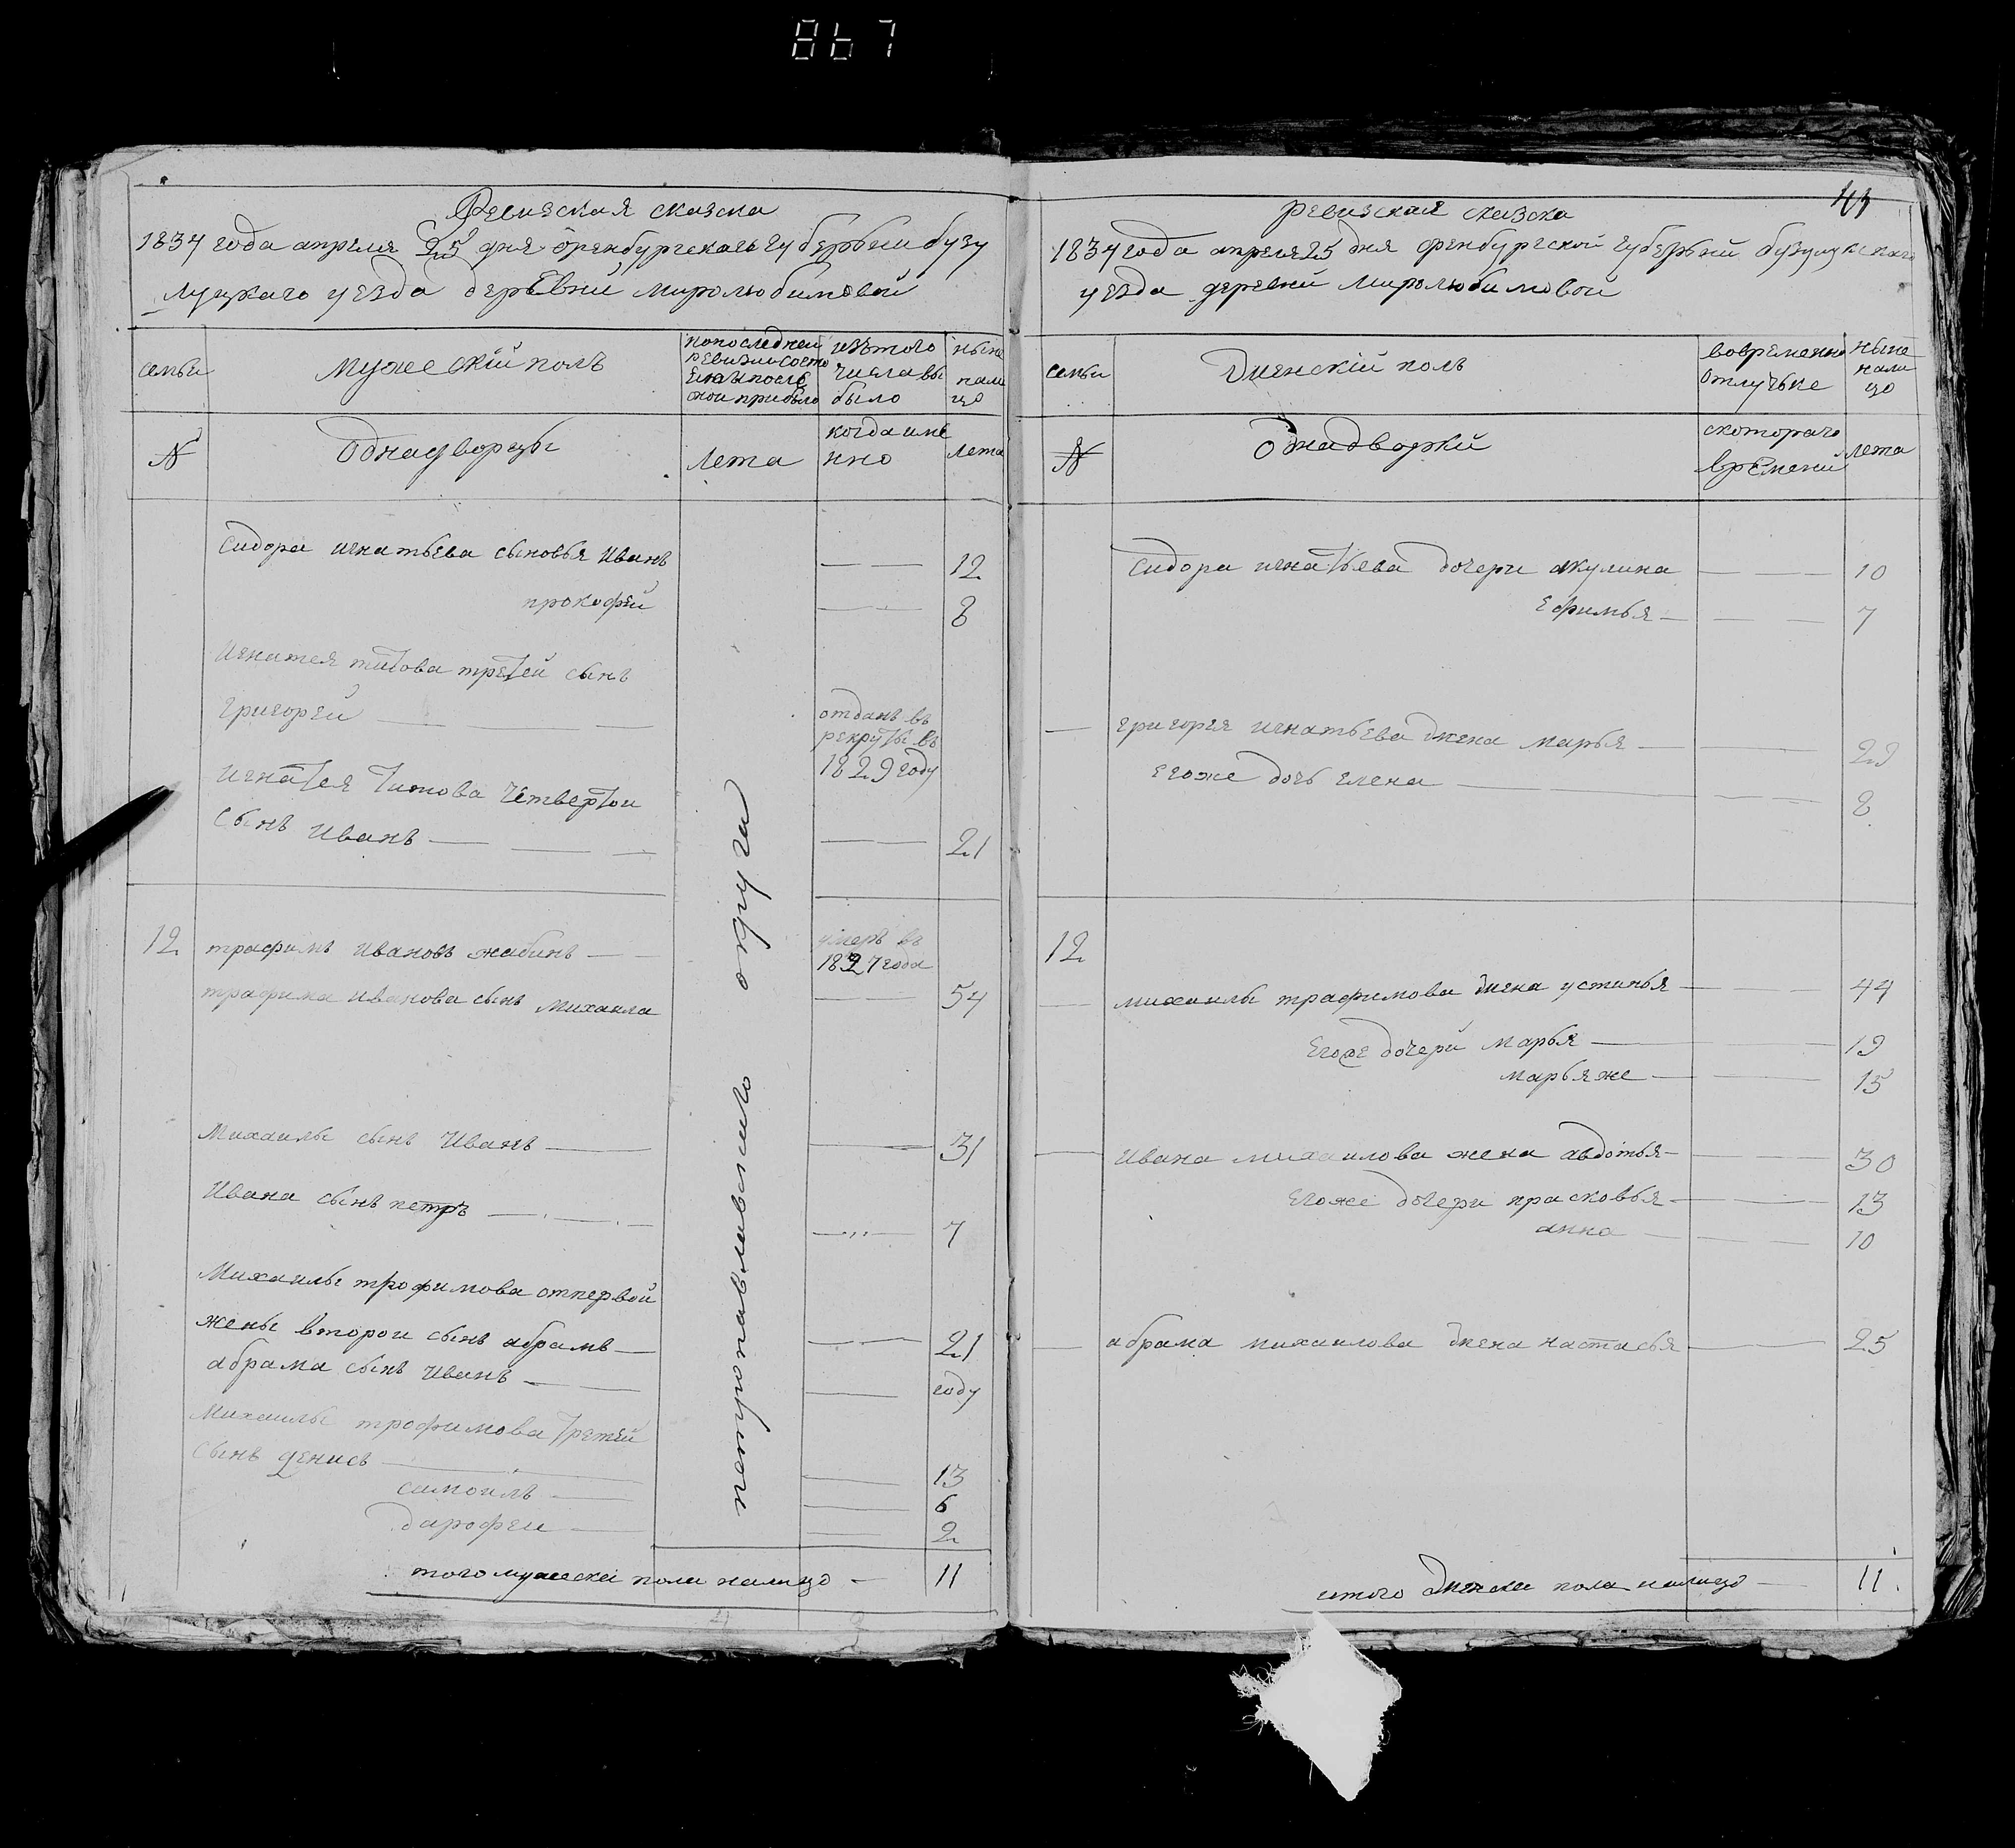 867
Ревизская сказка
1834 года апреля 25 дня оренбургскаго губерьнии бузу
луцкаго уезда деревни миролюбимовой
семьи
мужескій полъ
попоследнеи
ревизии состо
изътого
числа вы
было
ныне
нали
цо
N
однадворцы
Лета
когда име
нно
лета
Сидора игнатьева сыновья Иванъ — — 12
прокофей — — 8
Игнатея титова третей сынъ
григорей — — —
отданъ въ
рекруты въ
1829 году
Игнатея Титова четвертои
сынъ Иванъ — — — 21
12 трафимъ Ивановъ жабинъ — —
умеръ въ
1827 года
трафима Иванова сынъ Михаила — — 54
Михаилы сынъ Иванъ — 31
Ивана сынъ петръ — — — 7
Михаилы трофимова отпервой
жены второи сынъ абрамъ — — — 21
абрама сынъ Иванъ — — году
Михаилы трофимова третей
сынъ денисъ — 13
самоилъ — 6
дарофеи — 2
того мужеска пола налицо — 11
петропавлавскаго округа
43
ревизская сказка
1834 года апреля 25 дня оренбургской губерьнии бузулукскаго
уезда деревни Миролюбимовой
семьи
Женскій полъ
вовременно
отлучьке
ныне
нали
цо
N
Однадворки
скотораго
времени
лета
Сидора игнатьева дочери акулина — — 10
Ефимья — — — 7
— григорея игнатьева жена марья — — 29
Егоже дочь елена — — — 8
12
— михаилы трафимова жена устинья — — — 44
Егоже дочери Марья — — 19
марья же — — 15
— Ивана михаилова жена авдотья — — — 30
Егоже дочери прасковья — — — 13
анна — — — 10
— абрама михаилова жена настасья — — 25
итого женска пола налицо — 11